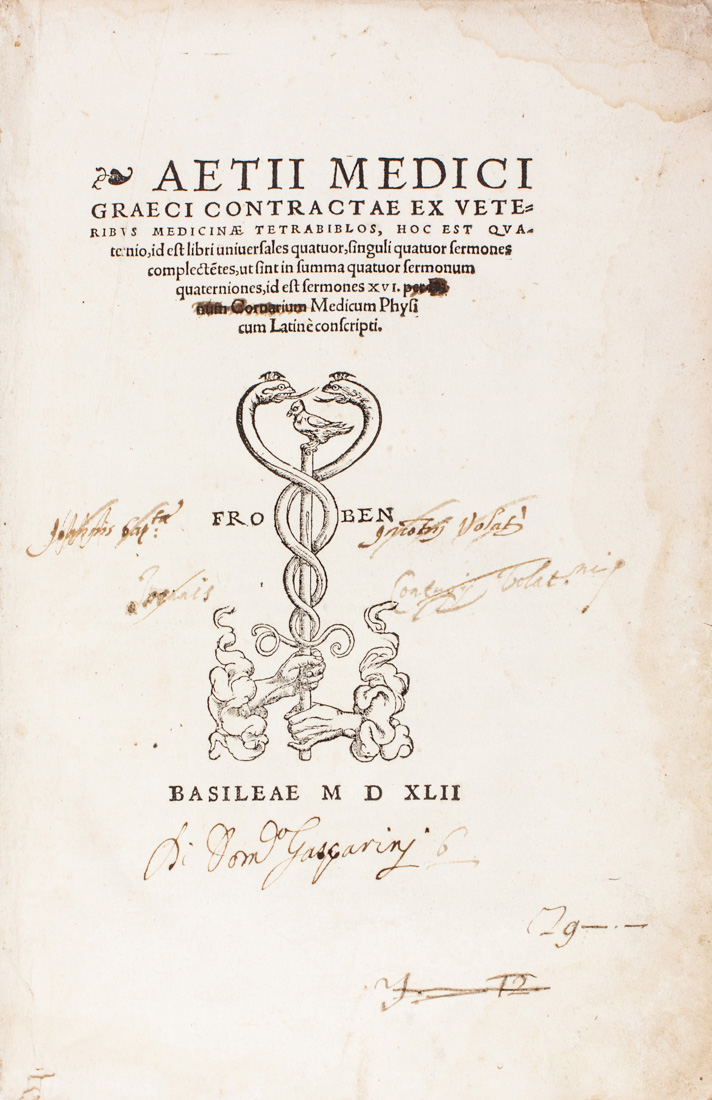 AETII MEDICI
GRAECI CONTRACTAE EX VETE=
RIBVS MEDICINÆ TETRABIBLOS, HOC EST QVA-
ternio, id est libri uniuersales quatuor, singuli quatuor sermones
complectẽtes, ut sint in summa quatuor sermonum
quaterniones, id est sermones XVI. per
num Cornarium Medicum Physi
cum Latinè conscripti.
FRO BEN
BASILEAE M D XLII
Di Dom.do Gasparinj 6